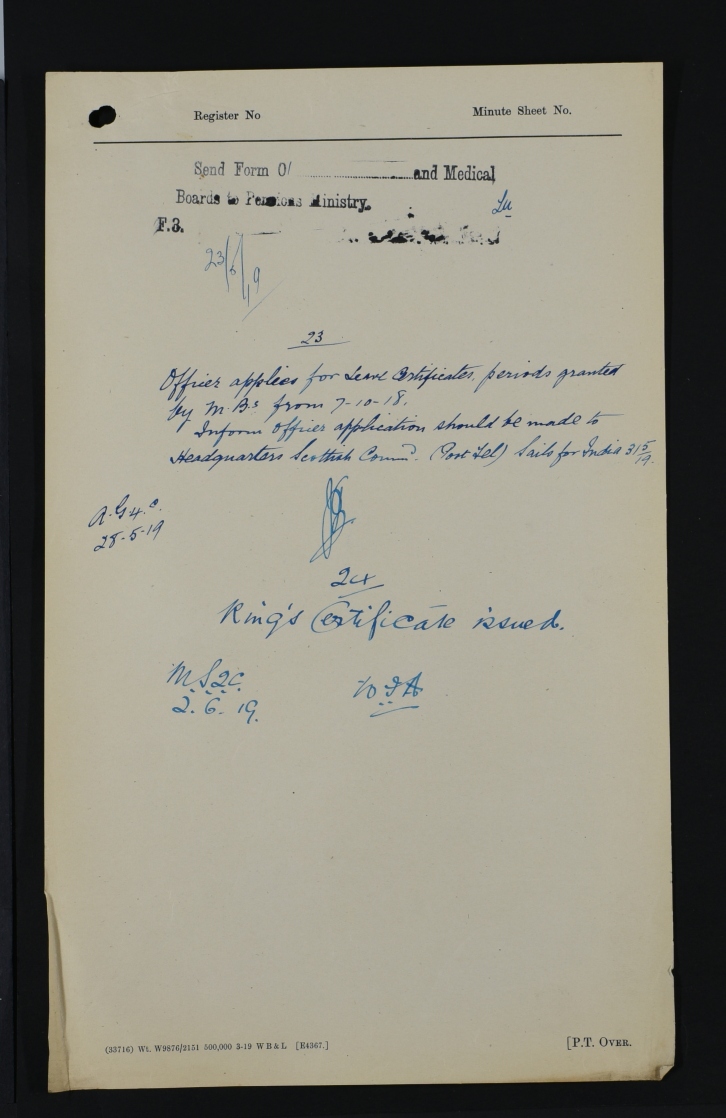 Register No
Minute Sheet No.
Send Form O/ ........................ and Medical
Boards to Pensions Ministry.
F.3.
23/5/19
23
Officer applies for Leave Certificates, periods granted
by M.B.s from 7-10-18.
Inform Officer application should be made to
Headquarters Scottish Commd. (Post Tel) Sails for India 31 5/19.
A.G.4.c.
28-5-19
24
King's Certificate issued.
M.S.2.C.
2.6.19.
(33716) Wt. W9876/2151 500,000 3-19 W B & L [E4367.]
[P.T. OVER.